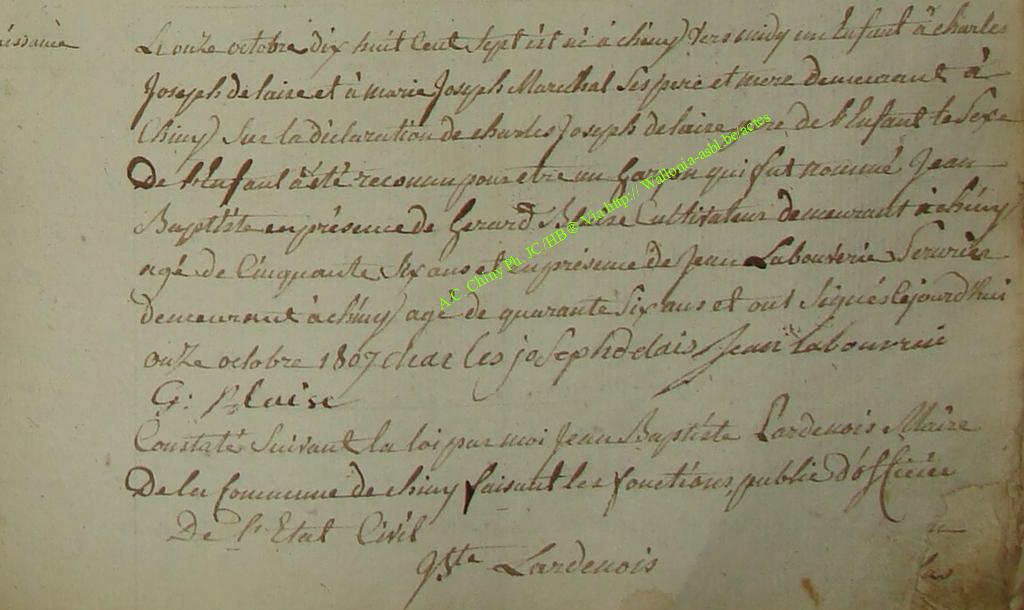 Le onze octobre dix huit cent sept est né à chiny vers midy un Enfant à charles
Joseph delaise et à marie Joseph Marechal ses pere et mere demeurant à
Chiny Sur la déclaration de charles Joseph delaise pere de l'Enfant le Sexe
De l'Enfant à été reconnu pour etre un Garçon qui fut nommé Jean
Baptiste en présence de Gerard Cultivateur demeurant à chiny
agé de Cinquante Six ans et en présence de Jean Labouverie
demeurant à chiny agé de quarante Six ans et ont Signés Cejourd'hui
onze octobre 1807 char les joseph delais Jean labouverie
G:
Constaté Suivant la loi par moi Jean Baptiste Lardenois Maire
De la Commune de chiny faisant les fonctions public d'officier
De l'Etat Civil
Lardenois
A.C Chiny Ph. JC/HB ® Via http:// Wallonia-asbl.be/actes